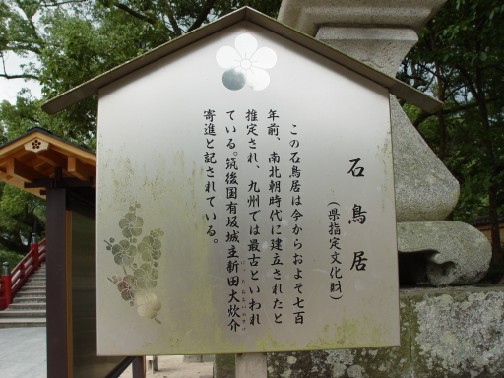 石鳥居
(県指定文化財)
この石鳥居は今からおよそ七百
年前、南北朝時代に建立されたと
推定され、九州では最古といわれ
ている。筑後国有坂城主新田大炊介
寄進と記されている。